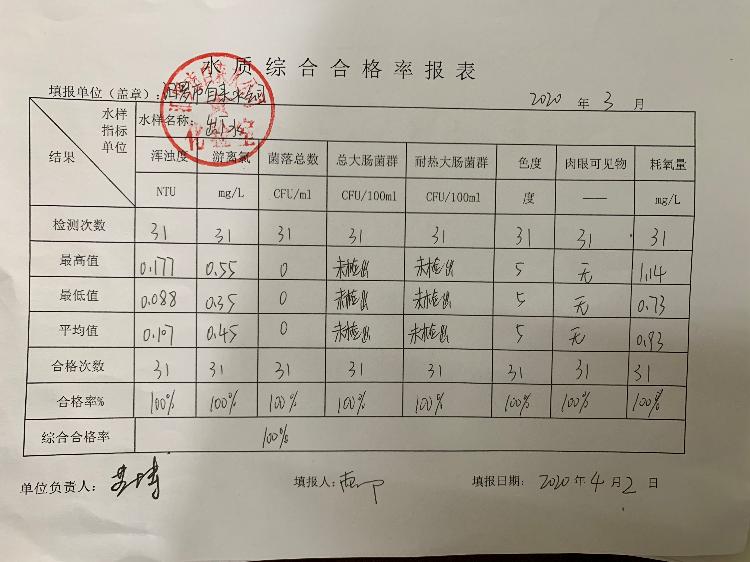 水质综合合格率报表
填报单位（盖章）：汨罗市自来水公司
2020 年 3 月
水样
指标
单位
结果
水样名称：出厂水
浑浊度 游离氯 菌落总数 总大肠菌群 耐热大肠菌群 色度 肉眼可见物 耗氧量
NTU mg/L CFU/ml CFU/100ml CFU/100ml 度 —— mg/L
检测次数 31 31 31 31 31 31 31 31
最高值 0.177 0.55 0 未检出 未检出 5 无 1.14
最低值 0.088 0.35 0 未检出 未检出 5 无 0.73
平均值 0.107 0.45 0 未检出 未检出 5 无 0.93
合格次数 31 31 31 31 31 31 31 31
合格率% 100% 100% 100% 100% 100% 100% 100% 100%
综合合格率 100%
单位负责人： 填报人： 填报日期： 2020 年 4 月 2 日